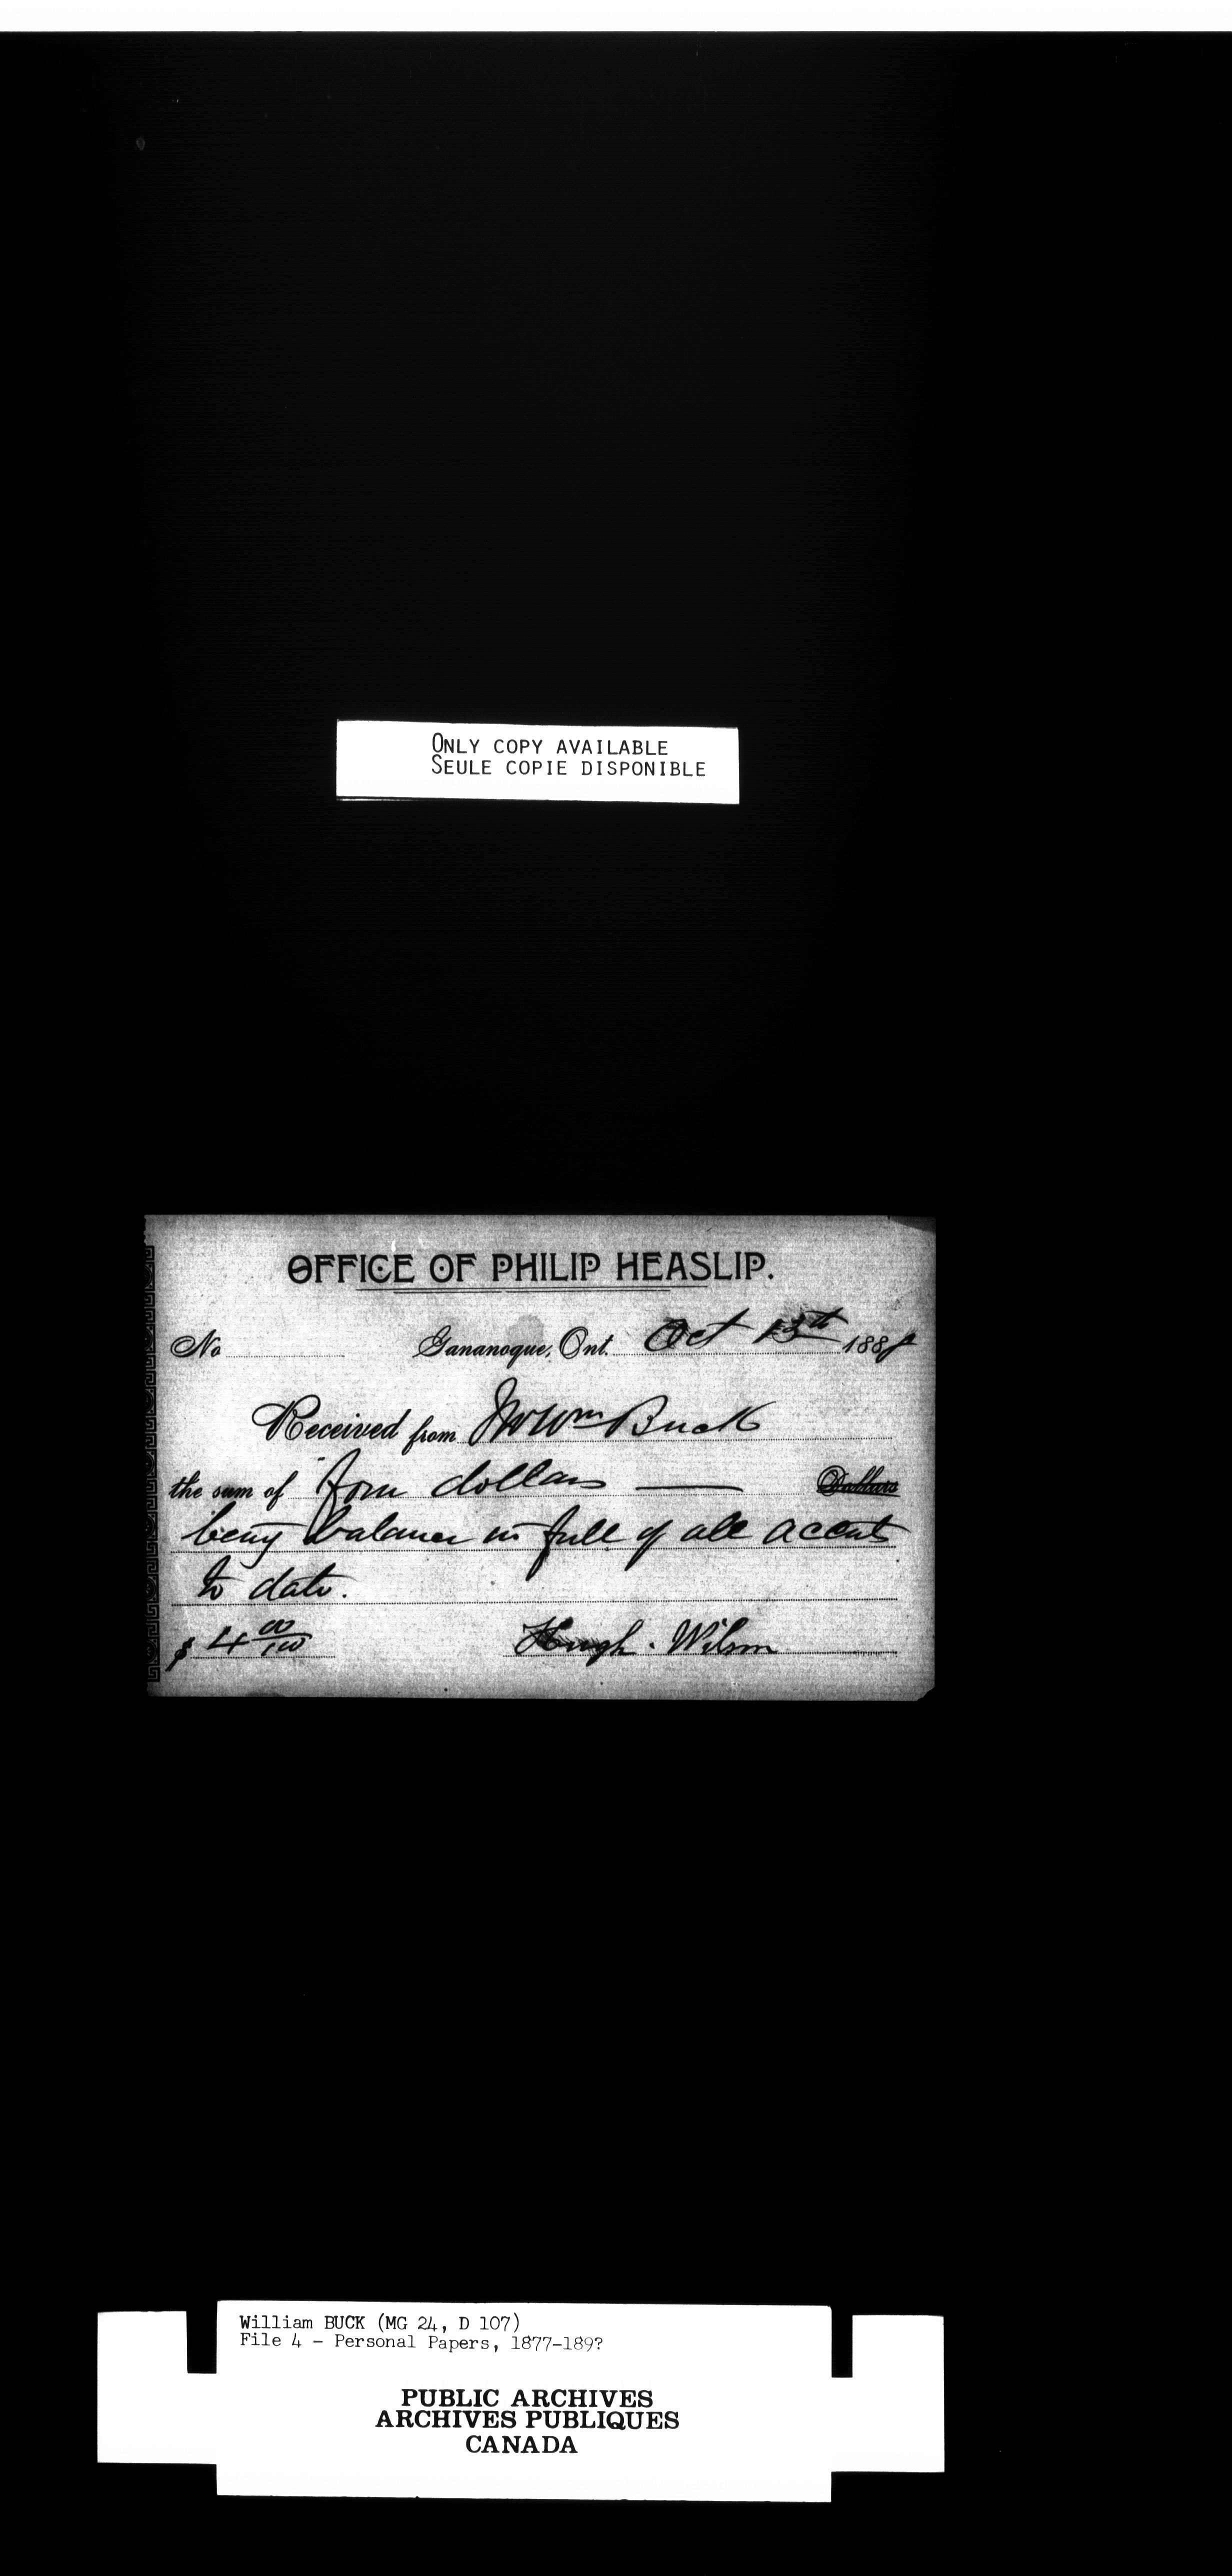 ONLY COPY AVAILABLE
SEULE COPIE DISPONIBLE
OFFICE OF PHILIP HEASLIP.
No Gananoque, Ont. Oct 13th 188
Received from Mr Wm Buck
the sum of four dollars — Dollars
being balance in full of all accents
to date.
$ 4 00/100 Hugh. Wilson
William BUCK (MG 24, D 107)
File 4 - Personal Papers, 1877-189?
PUBLIC ARCHIVES
ARCHIVES PUBLIQUES
CANADA